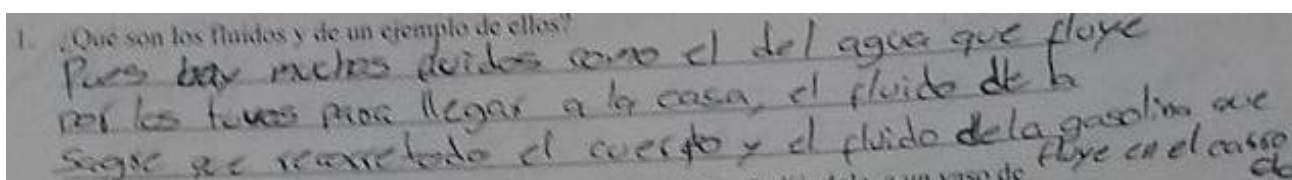 1. ¿Que son los fluidos y de un ejemplo de ellos?
Pues hay muchos fluidos como el del agua que fluye
por los tuvos para llegar a la casa, el fluido de la
sagre que recorre todo el cuerpo y el fluido de la gasolina que
fluye en el carro
a un vaso de